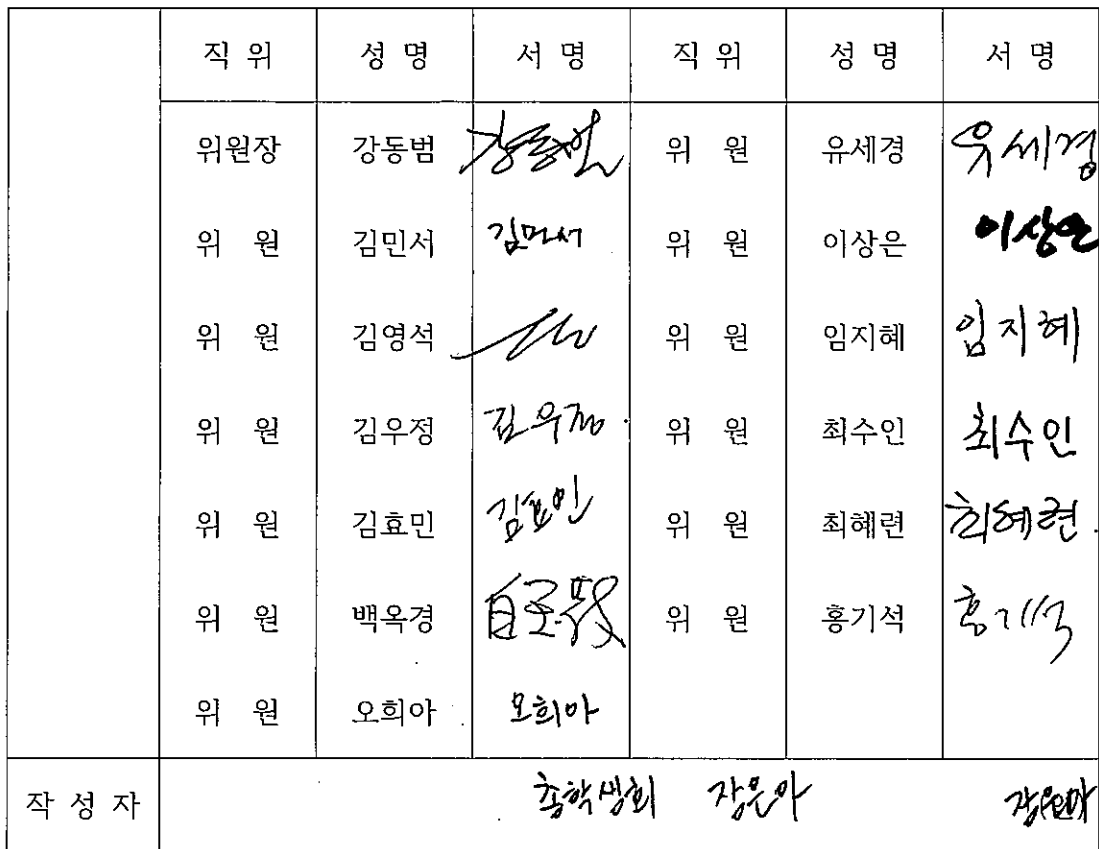 직 위 성 명 서 명 직 위 성 명 서 명
위원장 강동범 위 원 유세경 유세경
위 원 김민서 김민서 위 원 이상은 이상은
위 원 김영석 위 원 임지혜 임지혜
위 원 김우정 김우정 위 원 최수인 최수인
위 원 김효민 김효민 위 원 최혜련 최혜련
위 원 백옥경 위 원 홍기석 홍기석
위 원 오희아 오희아
작 성 자 총학생회 장은아 장은아